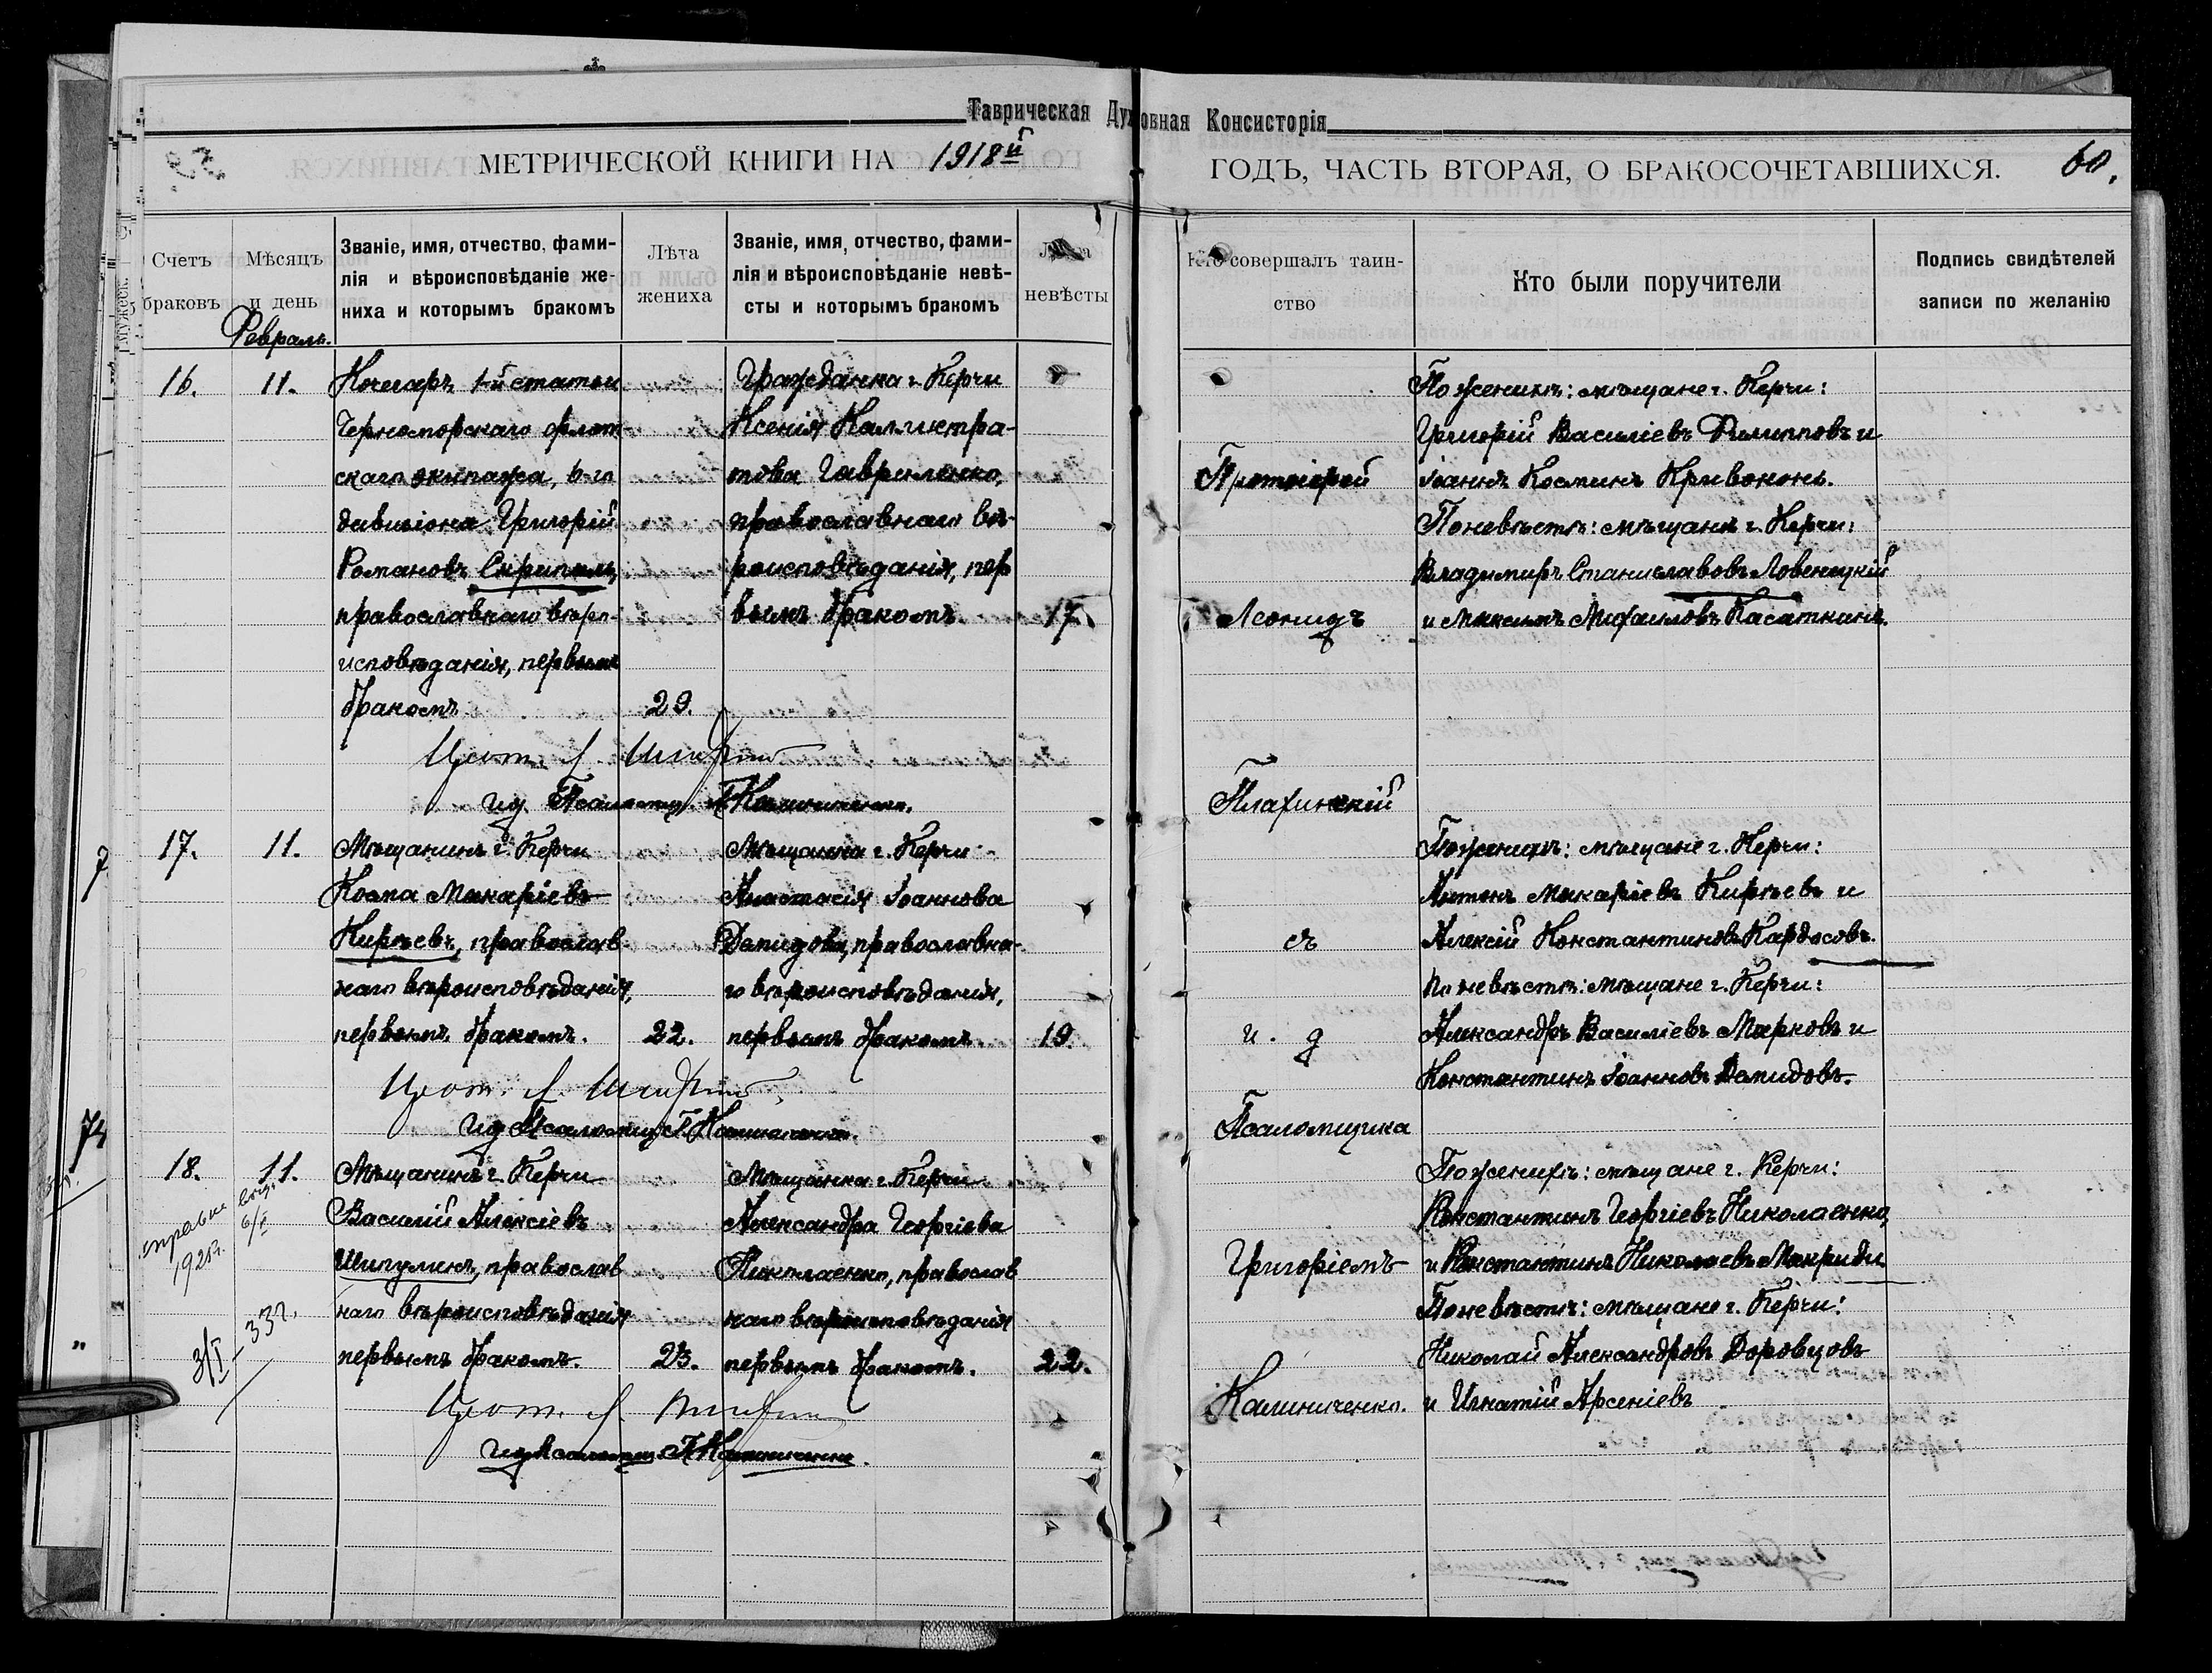 Таврическая Духовная Консисторія
МЕТРИЧЕСКОЙ КНИГИ НА 1918й ГОДЪ, ЧАСТЬ ВТОРАЯ, О БРАКОСОЧЕТАВШИХСЯ. 60.
Счетъ браковъ
Мѣсяцъ и день
Званіе, имя, отчество, фами-
лія и вѣроисповѣданіе же-
ниха и которымъ бракомъ
Лѣта жениха
Званіе, имя, отчество, фами-
лія и вѣроисповѣданіе невѣ-
сты и которымъ бракомъ
невѣсты
Кто совершалъ таин-
ство
Кто были поручители
Подпись свидѣтелей
записи по желанію
Февраль.
16.
11.
Кочегаръ 1-й статьи
Черноморскаго флот
скаго экипажа, 6-го
дивизіона Григорій
Романовъ
православнаго вѣро-
исповѣданія, первымъ
бракомъ
29.
Гражданка г. Керчи
Ксенія Каллистра-
това Гавриленко,
православнаго вѣ-
роисповѣданія, пер
вымъ бракомъ.
17
Протоіерей
Леонидъ
По женихѣ: мѣщане г. Керчи:
Григорій Василіевъ Филипповъ и
Іоаннъ Косминъ Кривоконь.
По невѣстѣ: мѣщане г. Керчи:
Владимиръ Станиславовъ Ловенецкій
и Максимъ Михаиловъ Касаткинъ.
Прот. Л.
ид. Псаломщ. Г. Калиниченко.
17.
11.
Мѣщанинъ г. Керчи
Косма Макаріевъ
Кирѣевъ, православ
наго вѣроисповѣданія,
первымъ бракомъ.
22.
Мѣщанка г. Керчи
Анастасія Іоаннова
Демидова, православна-
го вѣроисповѣданія,
первымъ бракомъ
19
съ
и. д
Псаломщика
По женихѣ: мѣщане г. Керчи:
Антонъ Макаріевъ Кирѣевъ и
Алексій Константиновъ Кардосовъ.
По невѣстѣ: мѣщане г. Керчи:
Александръ Василіевъ Марковъ и
Константинъ Іоанновъ Демидовъ.
Прот. Л.
ид Псаломщ Г. Калиниченко.
18.
11.
Мѣщанинъ г. Керчи
Василій Алексіевъ
Шипулинъ, православ
наго вѣроисповѣданія
первымъ бракомъ.
23.
Мѣщанка г. Керчи
Александра Георгіева
Николаенко, православ
наго вѣроисповѣданія
первымъ бракомъ.
22.
Григоріемъ
Калиниченко.
По женихѣ: мѣщане г. Керчи:
Константинъ Георгіевъ Николаенко,
и Константинъ Николаевъ Макриди
По невѣстѣ: мѣщане г. Керчи:
Николай Александровъ Доровцовъ
и Игнатій Арсеніевъ
1925г.
3/I – 33г.
Прот. Л.
ид Псаломщ. Г. Калиниченко.